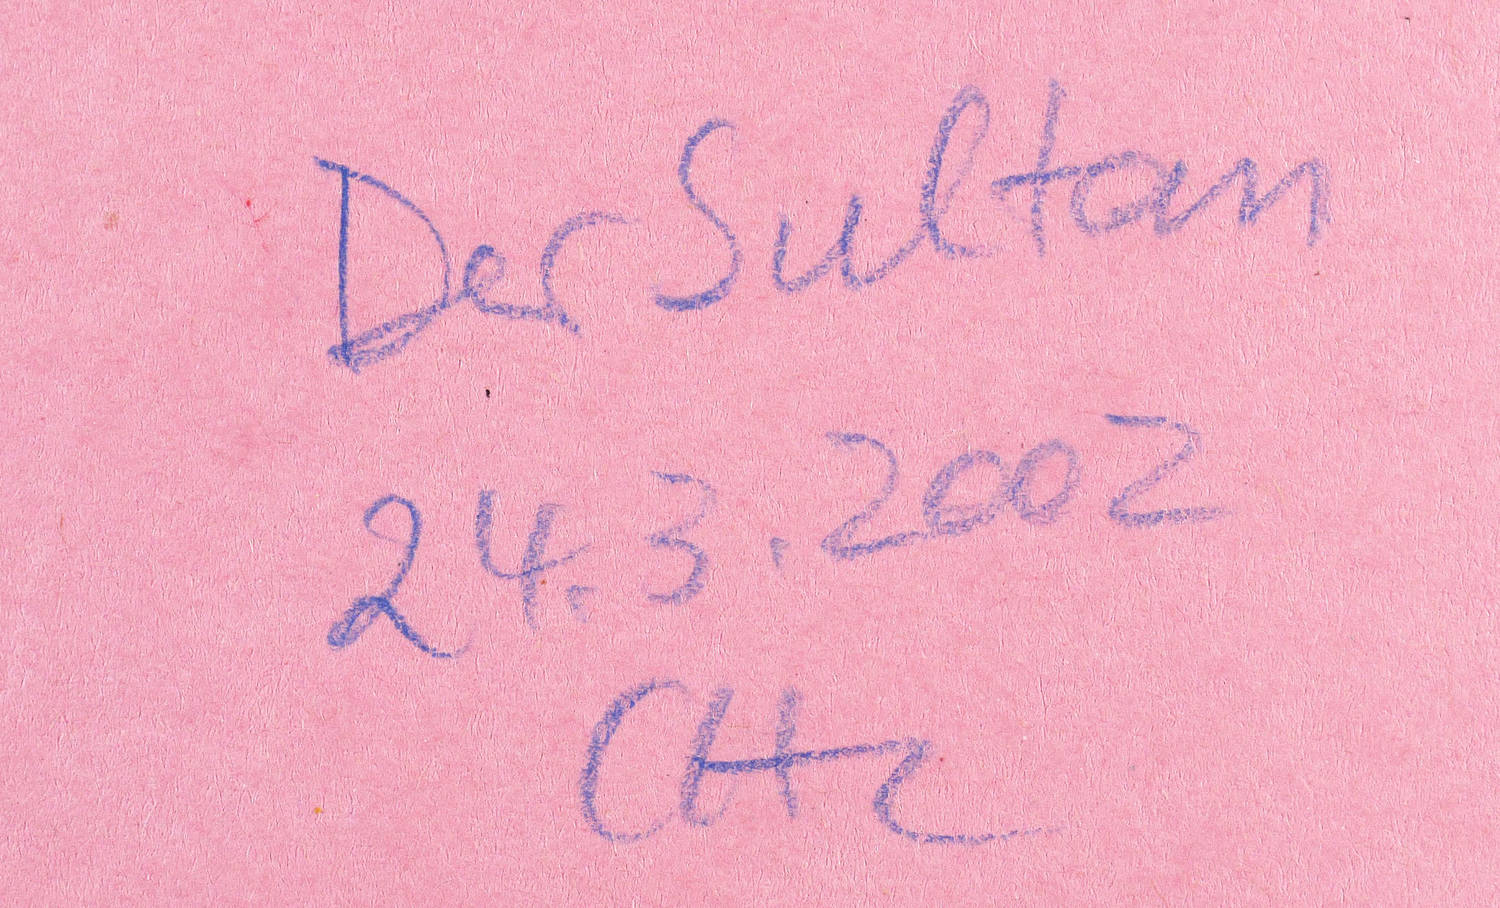 Der Sultan
24.3.2002